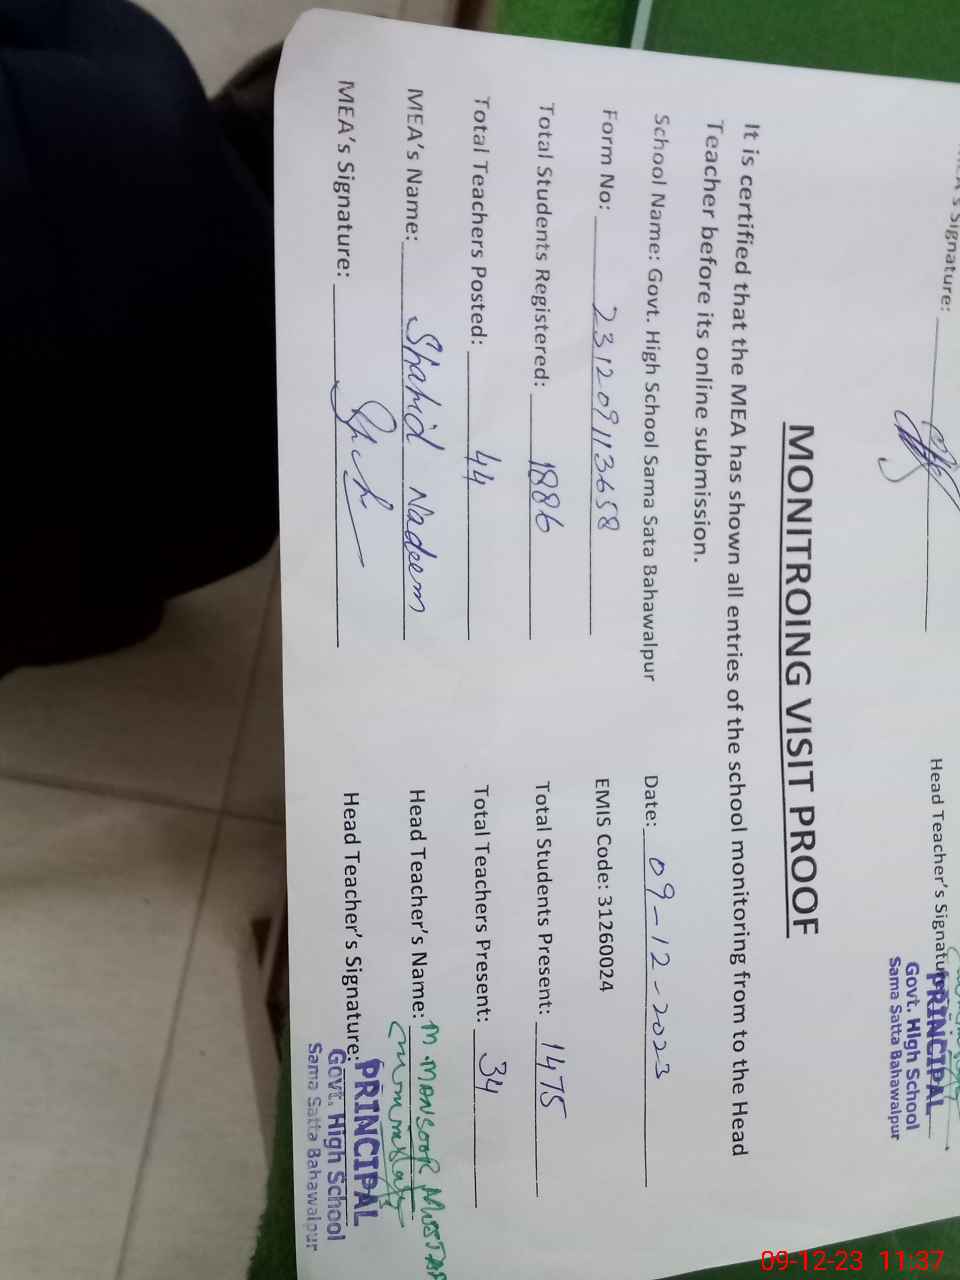 Signature:
Head Teacher's Signature
PRINCIPAL
Govt. High School
Sama Satta Bahawalpur
MONITROING VISIT PROOF
It is certified that the MEA has shown all entries of the school monitoring from to the Head
Teacher before its online submission.
School Name: Govt. High School Sama Sata Bahawalpur Date: 09-12-2023
Form No: 231209113658 EMIS Code: 31260024
Total Students Registered: 1886 Total Students Present: 1475
Total Teachers Posted: 44 Total Teachers Present: 34
MEA's Name: Shahid Nadeem Head Teacher's Name: M. MANSOOR
MEA's Signature: Head Teacher's Signature:
PRINCIPAL
Govt. High School
Sama Satta Bahawalpur
09-12-23 11:37